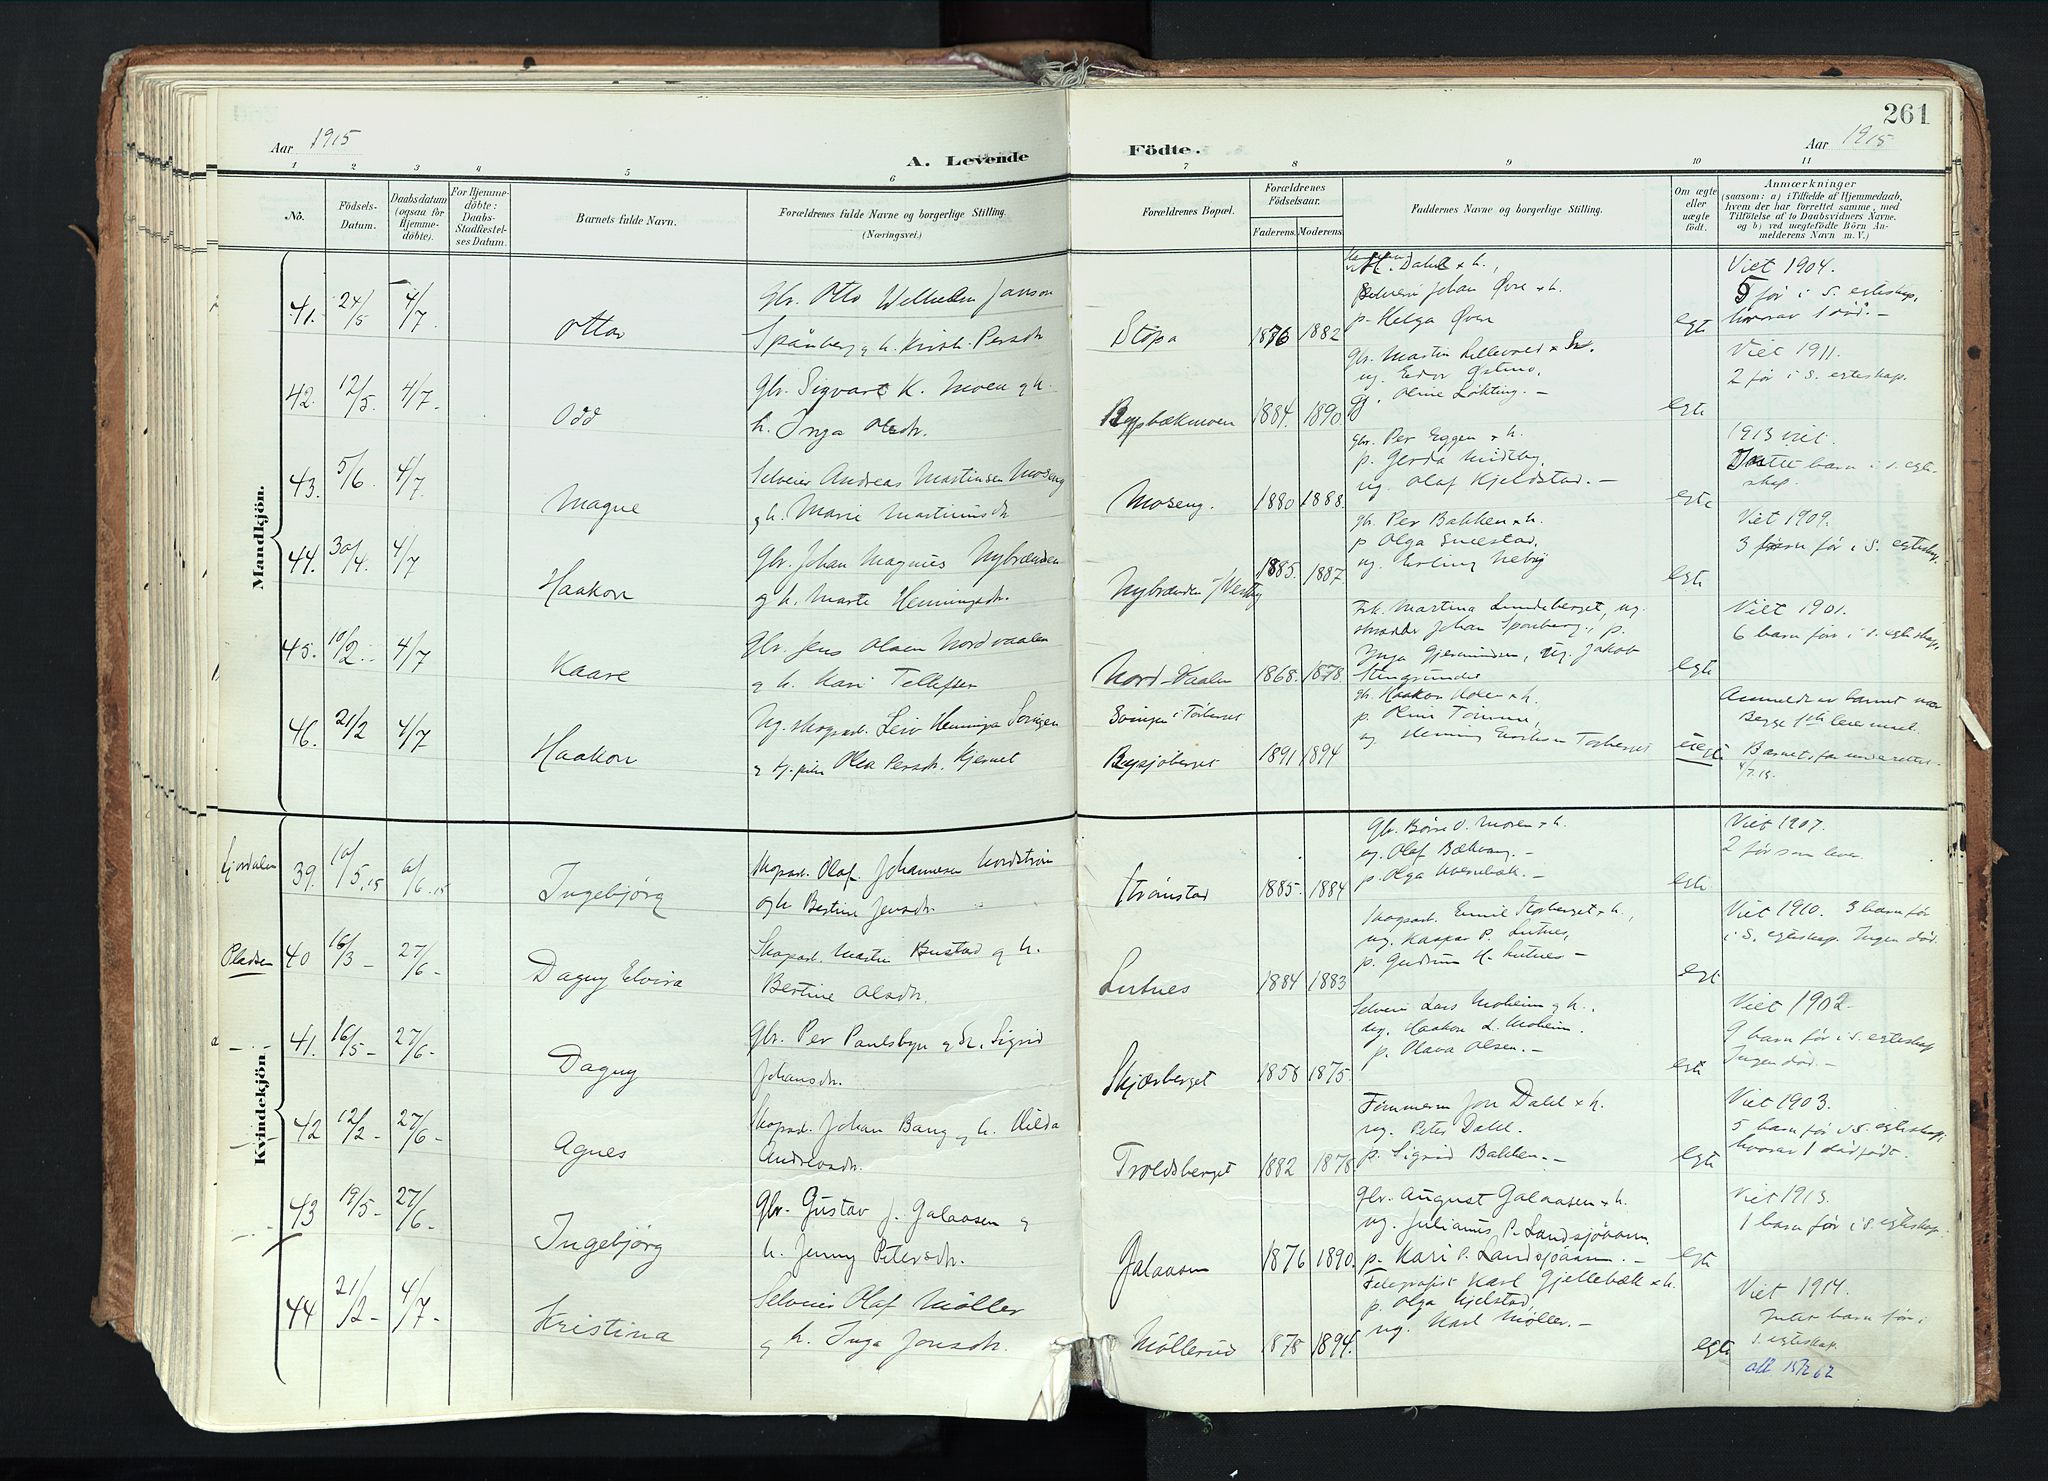 261
Aar 1915
A. Levende Födte.
Aar 1915
1 2 3 4 5 6 7 8 9 10 11
No.
Födsels-Datum.
Daabsdatum (ogsaa for Hjemme-döbte).
For Hjemme-döbte: Daabs-Stadfæstel-ses Datum.
Barnets fulde Navn.
Forældrenes fulde Navne og borgerlige Stilling.
(Næringsvei.)
Forældrenes Bopæl.
Forældrenes Födselsaar.
Faderens. Moderens.
Faddernes Navne og borgerlige Stilling.
Om ægte eller uægte födt.
Anmærkninger
(saasom: a) i Tilfælde af Hjemmedaab,
hvem der har forrettet samme, med
Tilföielse af to Daabsvidners Navne.
og b) ved uægtefödte Börn An-
melderens Navn m. V.)
Mandkjön.
41. 24/5 4/7 Ottar
Gbr. Otto Wilhelm Janson
Spånberg g h. Kirsti Persdtr
Støpa 1876 1882
Dahl & h.,
Selveier Johan Øvre & h.
p. Helga Øvre
egte
Viet 1904.
5 før i s. egteskap,
hvorav 1 død. -
42. 12/5. 4/7. Odd
Gbr. Sigvart K. Moen g h.
h. Inga Olsdtr.
Bygsbækmoen 1884. 1890
Gbr. Martin Lillevold &
ug. Eidor Østmo,
Oline Løkting. -
egte
Viet 1911.
2 før i s. egteskap.
43. 5/6. 4/7. Magne
Selveier Andreas Martinsen Moseng
g h. Marie Martinusdtr
Moseng. 1880 1888.
Gbr. Per Eggen & h.
p. Gerda Midtby
ug. Olaf Kjeldstad. -
egte
1913 viet.
barn i s. egte-
skap.
44. 30/4. 4/7 Haakon
Gbr. Johan Magnus Nybrænden
g h. Marte Henningsdtr.
Nybrænden / Vestby 1885. 1887.
gbr. Per Bakken & h.
p Olga Snerstad,
ug. Erling Neby
egte
Viet 1909.
3 barn før i s. egteskap.
45. 10/2. 4/7 Kaare
Gbr. Jens Olsen Nordvaalen
g h. Kari Tellefsen
Nord-Vaalen 1868. 1878.
Frk. Martina Lundeberget, ug.
skrædder Johan Sponberg., p.
Ynga Gjermundsen, ug. Jakob
Stengrundet
egte
Viet 1901.
6 barn før i s. egteskap,
46. 21/2 4/7 Haakon
Ug. skogsarb. Leiv Henningsen Soringen
g tj. pike Olea Persdtr. Kjernet
Soringen i Torberget
Bygsjøberget 1891 1894
gbr. Haakon Moen & h.
p. Oline Tomme,
ug. Henning Torberget
uegte
Anmeldt av barnets mor
Begge 1ste leiermaal.
Barnets far underrettet
4/7.15.
Kvindekjön.
Ljørdalen 39. 10/5.15 6/6.15 Ingebjørg
Skogsarb. Olaf Johannesen Nordstrøm
og h Bertine Jensdtr.
Strønstad 1885. 1884
Gbr. Børre O. Moren & h.
ug. Olaf Bækvang. -
p. Olga Kvernbæk. -
egte
Viet 1907.
2 før som lever.
Pladsen 40 16/3 - 27/6 - Dagny Elvira
Skogsarb. Martin Bustad g h.
Bertine Olsdtr.
Lutnes 1884 1883
Skogsarb. Emil Storberget & h.,
ug. Kaspar P. Lutnes,
p. Gudrun H. Lutnes -
egte
Viet 1910. 3 barn før
i s. egteskap. Ingen død.
41. 16/5 - 27/6 - Dagny
Gbr. Per Paulsbyn g h. Sigrid
Johansdtr.
Skjærberget 1858 1875.
Selveier Lars Moheim g h.,
ug. Haakon L. Moheim.
p. Olava Olsen. -
egte
Viet 1902 -
9 barn før i s. egteskap
Ingen død. -
42 12/2 - 27/6 - Agnes
Skogsarb. Johan Bang g h. Hilda
Andreasdtr.
Troldsberget 1882 1878
Tømmerm Jon Dahl & h.
ug. Peter Dahl.
p. Sigrid Bakken. -
egte
Viet 1903.
5 barn før i s. egteskap;
hvorav 1 dødfødt.
43 19/5 - 27/6 - Ingebjørg
Gbr. Gustav J. Galaasen g
h. Jenny Petersdtr.
Galaasen 1876 1890.
Gbr. August Galaasen & h.
ug. Julianus P. Landsjøåsen.
p. Kari P. Landsjøåsen. -
egte
Viet 1913.
1 barn før i s. egteskap.
44 21/2 - 4/7 - Kristina
Selveier Olaf Møller
g h. Inga Jonsdtr.
Møllerud 1878 1894.
Telegrafist Karl Gjellebæk & h.
p. Olga Kjelstad
ug. Karl Møller. -
egte
Viet 1914.
Intet barn før i
s. egteskap.
att 15/2 62